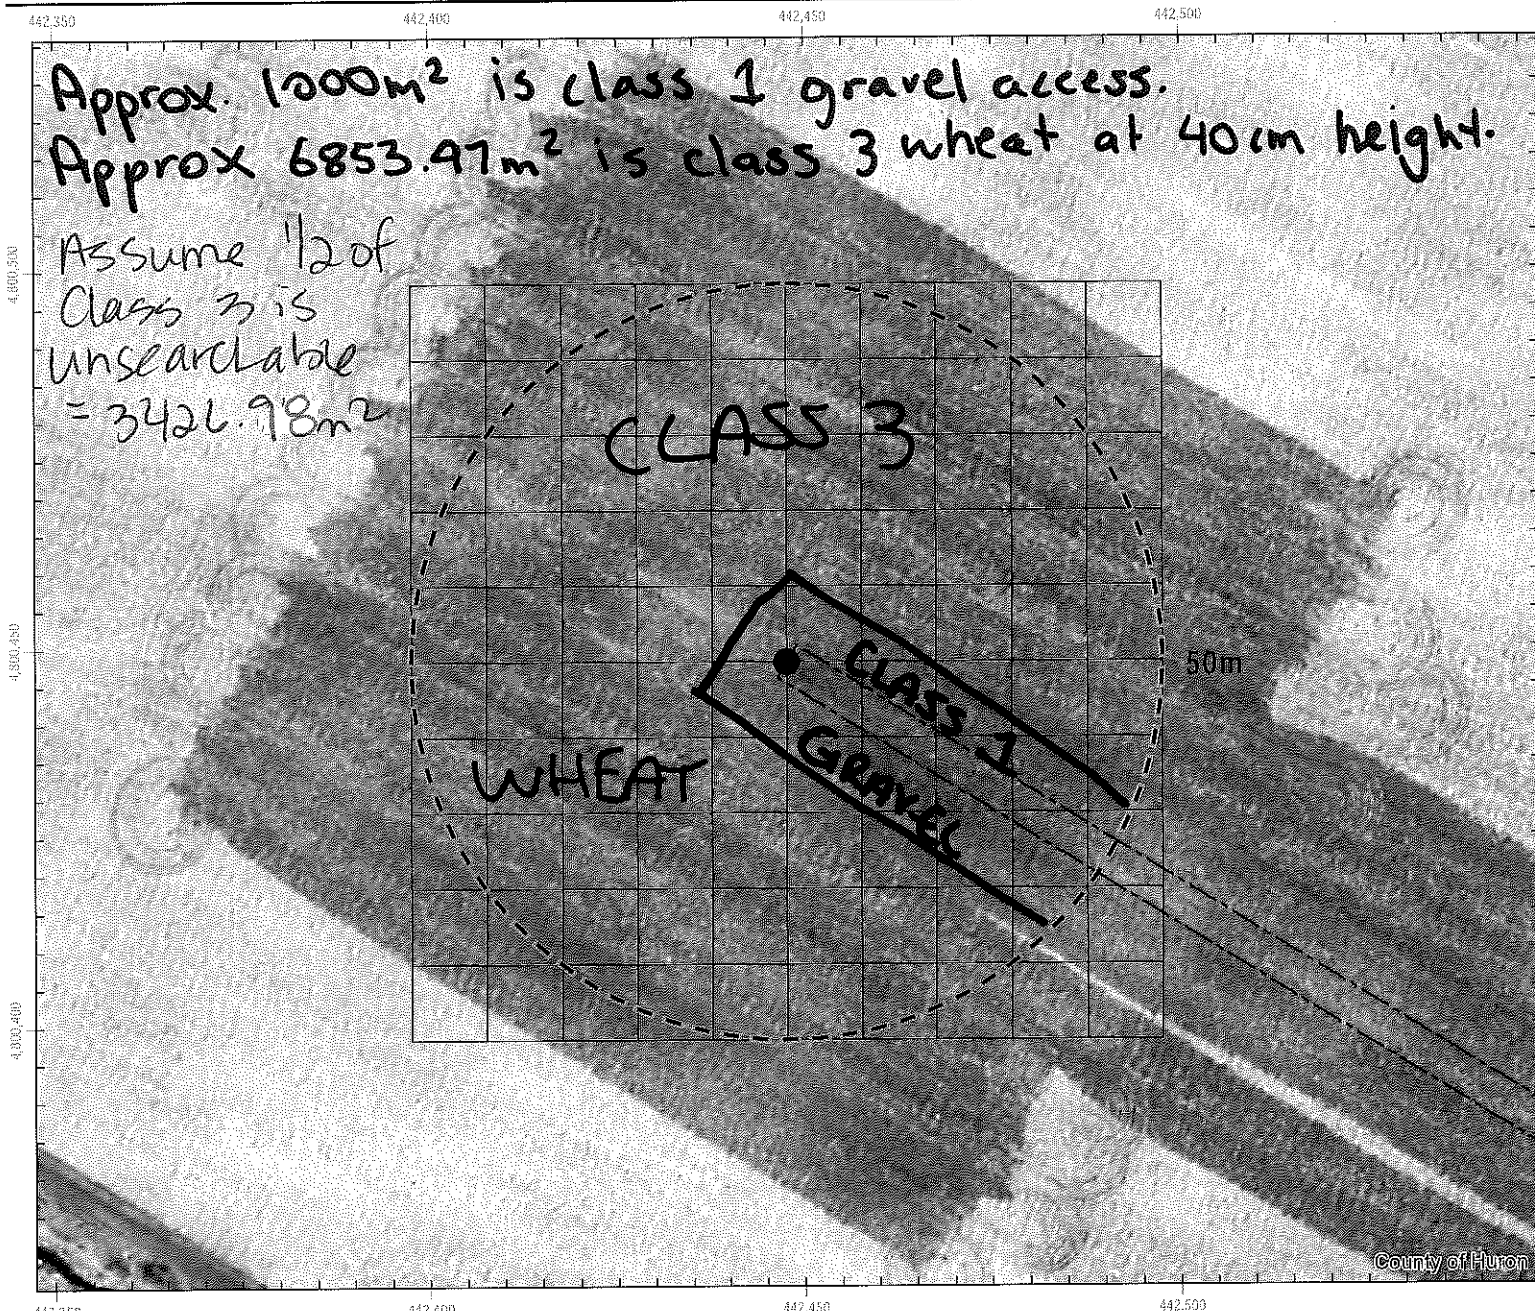 442,350 442,400 442,450 442,500
Approx. 1000m² is class 1 gravel access.
Approx 6853.97m² is class 3 wheat at 40cm height.
Assume 1/2 of
Class 3 is
unsearchable
= 3426.98m²
4,800,450
4,800,400
CLASS 3
CLASS 1
GRAVEL
WHEAT
50m
County of Huron
442,400 442,450 442,500